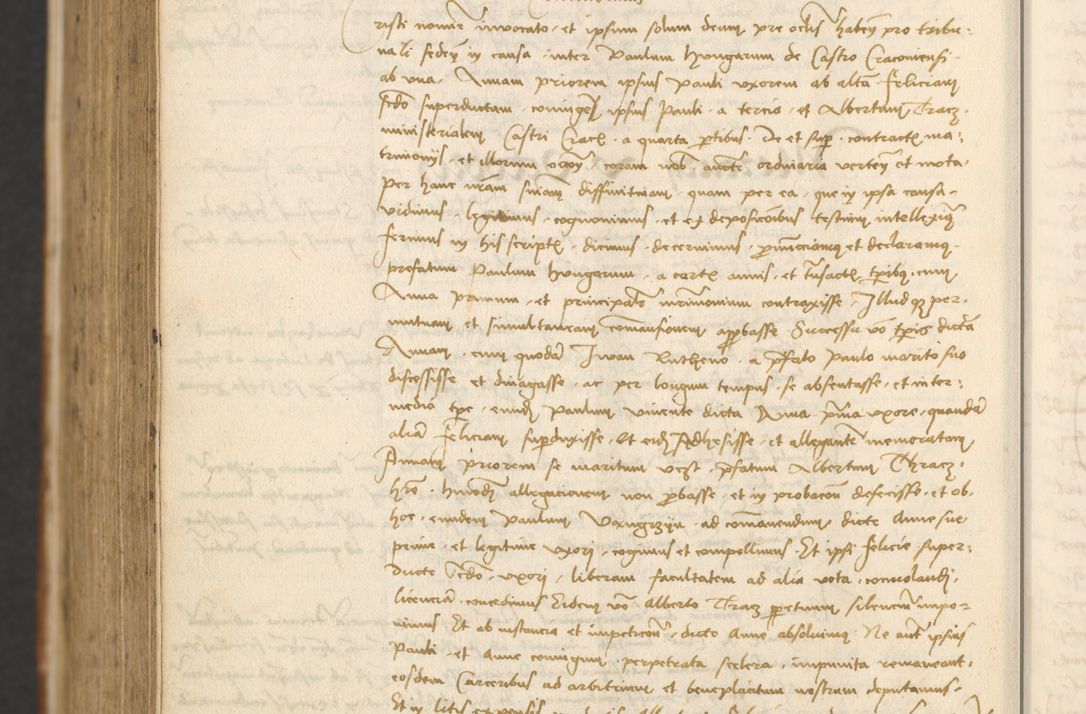 risti nomine invocato et ipsum solum deum pre oclis habens pro tribu:
nali seden in causa inter Paulum Hungarum de Castro Cracoviensi
ab una, Annam priorem ipsius Pauli uxorem ab alta Felician
scdo superductam coniuges ipsius Pauli a tercia et Albertum Tracz
ministerialem Castri Crac a quarta ptibus De et sup contract ma:
trimonys et illorum coram nob aucte ordinaria verten et mota
Per hanc nram sniam diffinitivam quam per ea que in ipsa causa
vidimus legimus cognovimus et ex deposicoibus testium intelleximq
ferimus in his script dicimus decernimus pnuncciamq et declaramq
prefatum Paulum Hungarum a cert annis et trasact tpribq cum
Anna primum et principale mrimonium contraxisse Illudqz per
mutuam et simultaneam comansionem approbasse Successu vo tpris dicta
Annam cum quoda Iwan Rutheno a pfato Paulo marito suo
discessisse et divagasse ac per longum tempus se absentasse et inter:
medio tpe eund Paulum vivente dicta Anna pma uxore quanda
alia Felician supduxisse Et eid Adhesisse et allegante memoratam
Annam priorem se maritum pfatum Albertum Thracz
hre hmod allegacionem non pbasse et in probacon defecisse et ob
hoc eundem Paulum ad comanendum dicte Anne sue
prime et legitime uxori cogimus et compellimus Et ipsi Felicie super:
ducte scdo uxori liberam facultatem ad alia vota convolandi
licencia concedimus Eidem vo Alberto Tracz ppetuum silenciu impo:
nimus Et ab instancia et impeticone dicte Anne absolvimq Ne aut ipsius
Pauli et Anne coniugum perpetrata scelera impunita remaneant
eosdem Carceribus ad arbitrium et beneplacitum nostrum deputamus
Et in litis expensis